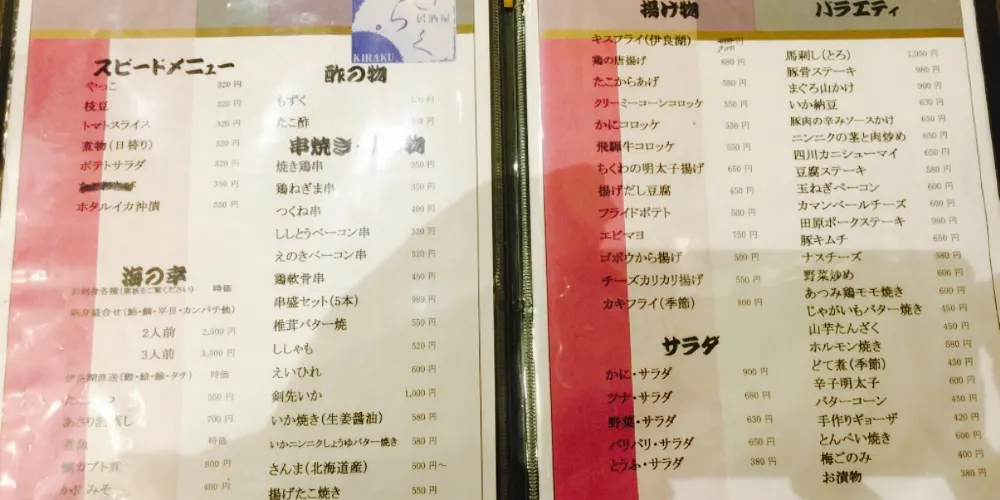 居酒屋
KIRAKU
スピードメニュー
やっこ 320円
枝豆 320円
トマトスライス 320円
煮物(日替り) 320円
ポテトサラダ 320円
350円
ホタルイカ沖漬 350円
海の幸
お刺身各種(黒板をご覧ください) 時価
刺身盛合せ(鮪・鯛・平目・カンパチ他)
2人前 2,500円
3人前 3,500円
時価
550円
700円
煮魚 時価
鯛カブト煮 800円
400円
酢の物
もずく
たこ酢
串焼き・ 物
焼き鶏串 350円
鶏ねぎま串 350円
つくね串 400円
ししとうベーコン串 520円
えのきベーコン串 520円
鶏軟骨串 450円
串盛セット(5本) 989円
椎茸バター焼 550円
ししゃも 520円
えいひれ 600円
剣先いか 1,000円
いか焼き(生姜醤油) 580円
いかニンニクしょうゆバター焼き 580円
さんま(北海道産) 500円〜
揚げたこ焼き 550円
揚げ物
キスフライ(伊良湖)
鶏の唐揚げ 680円
たこからあげ 580円
クリーミーコーンコロッケ 550円
かにコロッケ 550円
飛騨牛コロッケ 550円
ちくわの明太子揚げ 650円
揚げだし豆腐 450円
フライドポテト 500円
エビマヨ 750円
ゴボウから揚げ 500円
チーズカリカリ揚げ 550円
カキフライ(季節) 800円
サラダ
かに・サラダ 900円
ツナ・サラダ 680円
野菜・サラダ 630円
パリパリ・サラダ 650円
とうふ・サラダ 380円
バラエティ
馬刺し(とろ) 1,050円
豚骨ステーキ 980円
まぐろ山かけ 900円
いか納豆 630円
豚肉の辛みソースかけ 650円
ニンニクの茎と肉炒め 650円
四川カニシューマイ 650円
豆腐ステーキ 580円
玉ねぎベーコン 600円
カマンベールチーズ 600円
田原ポークステーキ 980円
豚キムチ 650円
ナスチーズ 580円
野菜炒め 600円
あつみ鶏モモ焼き 600円
じゃがいもバター焼き 450円
山芋たんざく 450円
ホルモン焼き 580円
どて煮(季節) 450円
辛子明太子 600円
バターコーン 450円
手作りギョーザ 420円
とんぺい焼き 600円
梅ごのみ 400円
お漬物 380円